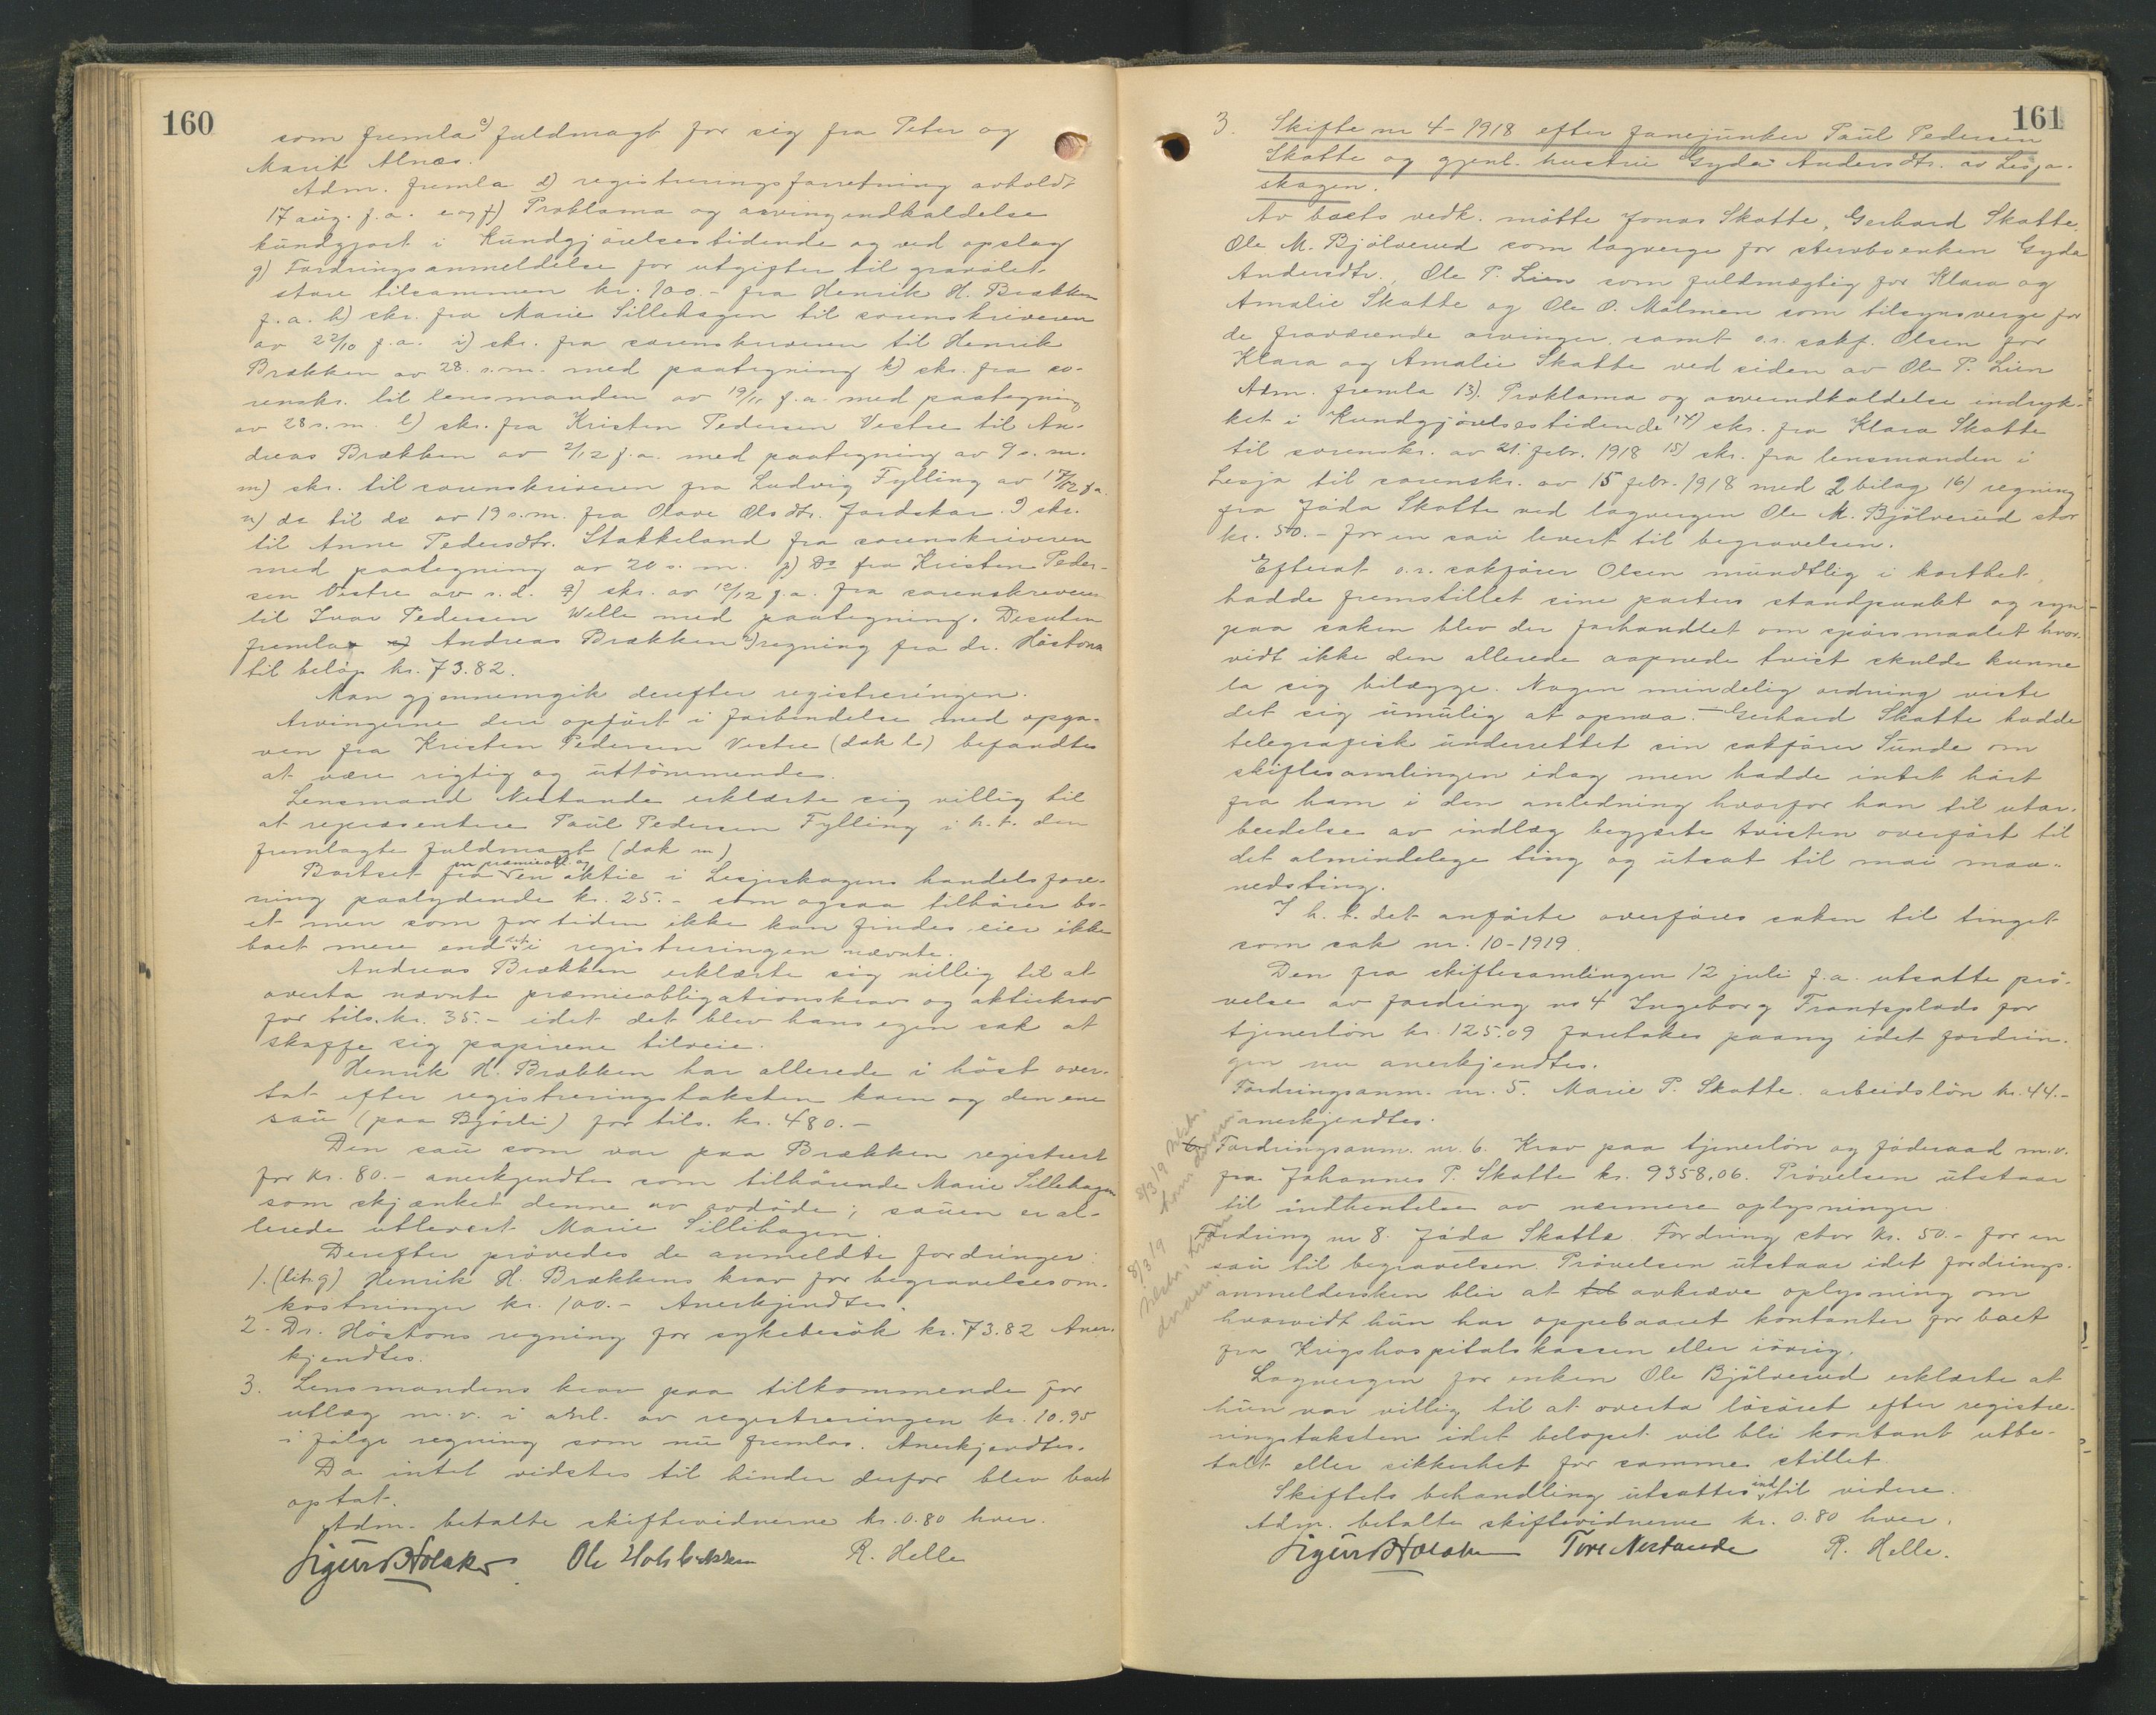 160
som fremla c) fuldmagt for sig fra Peter og
Marit Alnæs.
Adm. fremla d) registreringsforretning avholdt
17 aug. f.a. e og f) Proklama og arvingindkaldelse
kundgjort i Kundgjörelsestidende og ved opslag
g) Fordringsanmeldelse for utgifter til gravölet
store tilsammen kr. 100.- fra Henrik H. Brækken
f.a. h) skr. fra Marie Sillehagen til sorenskriveren
av 22/10 f.a. i) skr. fra sorenskriveren til Henrik
Brækken av 28. s.m. med paategning k) skr. fra so-
renskr. til lensmanden av 19/11 f.a. med paategning
av 28 s.m. l) skr. fra Kristen Pedersen Vestre til An-
dreas Brækken av 2/12 f.a. med paategning av 9 s.m.
m) skr. til sorenskriveren fra Ludvig Fylling av 17/12 f.a.
n) do til do av 19 s.m. fra Olave Olsdtr. Jordskar. o) skr.
til Anne Pedersdtr. Stakkeland fra sorenskriveren
med paategning av 20 s.m. p) Do fra Kristen Peder-
sen Vestre av s.d. q) skr. av 10/12 f.a. fra sorenskriveren
til Ivar Pedersen Welle med paategning. Desuten
fremla Andreas Brækken r) regning fra dr. Höstons
til belöp kr. 73.82.
Man gjennemgik derefter registreringen.
Arvingerne der opfört i forbindelse med opga-
ven fra Kristen Pedersen Vestre (dok l) befandtes
at være rigtig og uttömmende.
Lensmand Nestande erklærte sig villig til
at repræsentere Paul Pedersen Fylling i h.t. den
fremlagte fuldmagt (dok m)
Bortset fra en præmieobl. og en aktie i Lesjeskogens handelsfore-
ning paalydende kr. 25.- som ogsaa tilhörer bo-
et men som for tiden ikke kan findes eier ikke
boet mere end det i registreringen nævnte.
Andreas Brækken erklærte sig villig til at
overta nævnte præmieobligationskrav og aktiekrav
for tils. kr. 35.- idet det blev hans egen sak at
skaffe sig papirene tilveie.
Henrik H. Brækken har allerede i höst over-
tat efter registreringstaksten kuen og den ene
sau (paa Bjorli) for tils. kr. 480.-
Den sau som var paa Brækken registrert
for kr. 80.- anerkjendtes som tilhörende Marie Sillehagen
som skjænket denne av avdöde; sauen er al-
lerede utlevert Marie Sillehagen.
Derefter prövedes de anmeldte fordringer:
1. (litr. g) Henrik H. Brækkens krav for begravelsesom-
kostninger kr. 100.- Anerkjendtes.
2. Dr. Höstons regning for sykebesök kr. 73.82 Aner-
kjendtes.
3. Lensmandens krav paa tilkommende for
utlæg m.v. i anl. av registreringen kr. 10.95
i fölge regning som nu fremlas. Anerkjendtes.
Da intet vidstes til hinder derfor blev boet
optat.
Adm. betalte skiftevidnerne kr. 0.80 hver.
Sigurd Holaker Ole Holsbrækken R. Helle
161
3. Skifte nr 4-1918 efter fanejunker Paul Pedersen
Skotte og gjenl. hustru Gyda Andersdtr. av Lesja-
skogen.
Av boets vedk. mötte Jonas Skotte, Gerhard Skotte,
Ole M. Bjölverud som lagverge for sterboenken Gyda
Andersdtr., Ole P. Lien som fuldmægtig for Klara og
Amalie Skotte og Ole O. Molmen som tilsynsverge for
de fraværende arvinger. samt o.r. sakf. Olsen for
Klara og Amalie Skotte ved siden av Ole P. Lien
Adm. fremla 13). Proklama og arveindkaldelse indryk-
ket i Kundgjörelsestidende 14) skr. fra Klara Skotte
til sorenskr. av 21. febr. 1918 15) skr. fra lensmanden i
Lesja til sorenskr. av 15 febr. 1918 med 2 bilag 16) regning
fra Jöda Skotte ved lagvergen Ole M. Bjölverud stor
kr. 50.- for en sau levert til begravelsen.
Efterat o.r. sakförer Olsen mundtlig i korthet
hadde fremstillet sine parters standpunkt og syn
paa saken blev der forhandlet om spörsmaalet hvor-
vidt ikke den allerede aapnede tvist skulde kunne
la sig bilægge. Nogen mindelig ordning viste
det sig umulig at opnaa. - Gerhard Skotte hadde
telegrafisk underrettet sin sakförer Sunde om
skiftesamlingen idag men hadde intet hört
fra ham i den anledning hvorfor han til utar-
beidelse av indlæg begjærte tvisten overfört til
det almindelige ting og utsat til mai maa-
nedsting.
I h.t. det anförte overföres saken til tinget
som sak nr. 10-1919.
Den fra skiftesamlingen 12 juli f.a. utsatte prö-
velse av fordring no 4 Ingeborg Trandsplads for
tjenerlön kr. 125.09 foretokes paany idet fordrin-
gen nu anerkjendtes.
Fordringsanm. nr. 5. Marie P. Skotte. arbeidslön kr. 44.-
anerkjendtes.
Fordringsanm. nr. 6. Krav paa tjenerlön og föderaad m.v.
fra Johannes P. Skotte kr. 9358.06. Prövelsen utstaar
til indhentelse av nærmere oplysninger.
Fordring nr 8. Jöda Skotte. Fordring stor kr. 50.- for en
sau til begravelsen. Prövelsen utstaar idet fordrings-
anmeldersken blir at avkræve oplysning om
hvorvidt hun har oppebaaret kontanter for boet
fra Krigshospitalskassen eller iövrig.
Lagvergen for enken Ole Bjölverud erklærte at
hun var villig til at overta lösöret efter registre-
ringstaksten idet belöpet vil bli kontant utbe-
talt eller sikkerhet for samme stillet.
Skiftets behandling utsattes indtil videre.
Adm. betalte skiftevidnerne kr. 0.80 hver.
Sigurd Holaker Tore Nestande R. Helle.
8/3 19
8/3 19